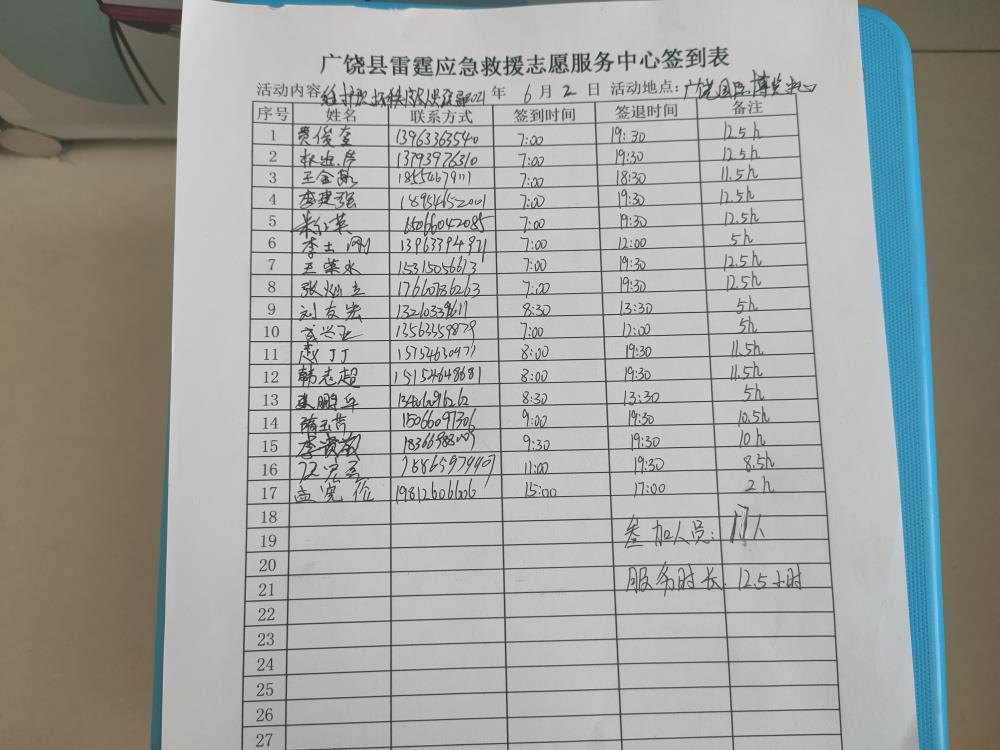 广饶县雷霆应急救援志愿服务中心签到表
活动内容: 2021年 6月 2日 活动地点:广饶国际博览中心
序号 姓名 联系方式 签到时间 签退时间 备注
1 贾俊奎 13963363540 7:00 19:30 12.5h
2 13793976310 7:00 19:30 12.5h
3 王金 7:00 18:30 11.5h
4 李建强 18954652001 7:00 19:30 12.5h
5 15066042085 7:00 19:30 12.5h
6 李士刚 13963394971 7:00 12:00 5h
7 王荣水 15315056613 7:00 19:30 12.5h
8 17660786263 7:00 19:30 12.5h
9 刘友宏 8:30 13:30 5h
10 13563559879 7:00 12:00 5h
11 赵丁丁 15154630971 8:00 19:30 11.5h
12 韩志超 15154648681 8:00 19:30 11.5h
13 8:30 13:30 5h
14 15066097306 9:00 19:30 10.5h
15 9:30 19:30 10h
16 11:00 19:30 8.5h
17 孟宪价 19812606606 15:00 17:00 2h
18
19 参加人员: 17人
20
21 服务时长: 12.5小时
22
23
24
25
26
27